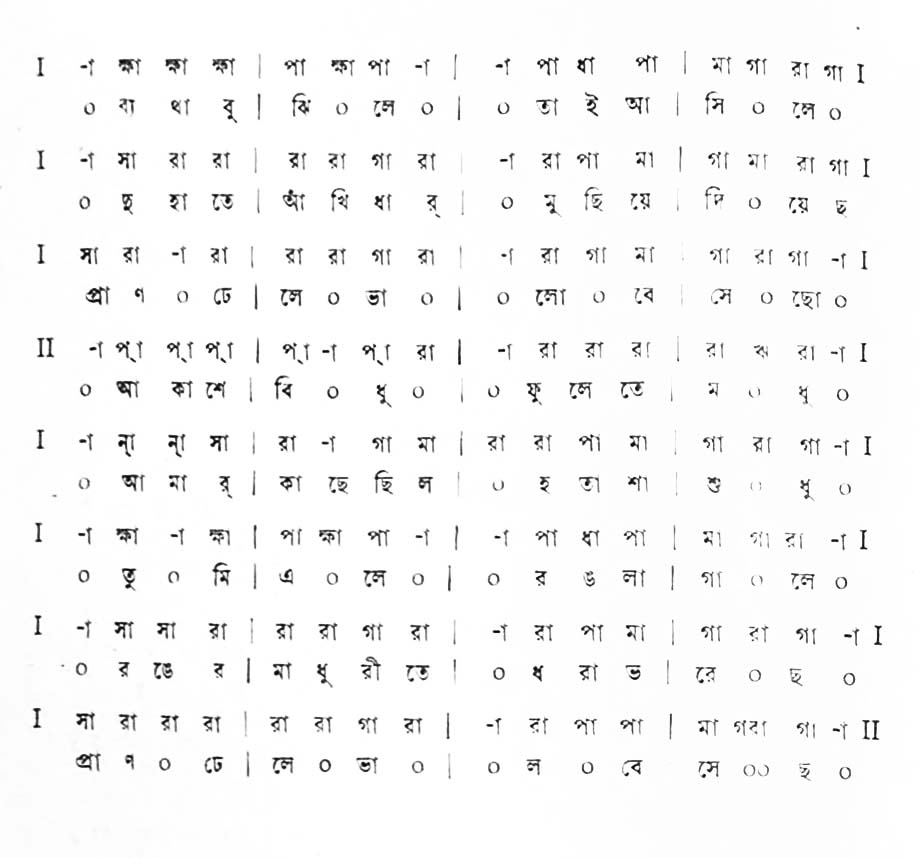 I -া ক্ষা ক্ষা ক্ষা | পা ক্ষা পা -া | -া পা ধা পা | মা গা রা গা I
০ ব্য থা বু | ঝি ০ লে ০ | ০ তা ই আ | সি ০ লে ০
I -া সা রা রা | রা রা গা রা | -া রা পা মা | গা মা রা গা I
০ দু হা তে | আঁ খি ধা র্ | ০ মু ছি য়ে | দি ০ য়ে ছ
I সা রা -া রা | রা রা গা রা | -া রা গা মা | গা রা গা -া I
প্রা ণ ০ ঢে | লে ০ ভা ০ | ০ লো ০ বে | সে ০ ছো ০
II -া প্া প্া প্া | প্া -া প্া রা | -া রা রা রা | রা ঋ রা -া I
০ আ কা শে | বি ০ ধু ০ | ০ ফু লে তে | ম ০ ধু ০
I -া ন্া ন্া সা | রা -া গা মা | রা রা পা মা | গা রা গা -া I
০ আ মা র্ | কা ছে ছি ল | ০ হ তা শা | শু ০ ধু ০
I -া ক্ষা -া ক্ষা | পা ক্ষা পা -া | -া পা ধা পা | মা গা রা -া I
০ তু ০ মি | এ ০ লে ০ | ০ র ঙ লা | গা ০ লে ০
I -া সা সা রা | রা রা গা রা | -া রা পা মা | গা রা গা -া I
০ র ঙে র | মা ধু রী তে | ০ ধ রা ভ | রে ০ ছ ০
I সা রা রা রা | রা রা গা রা | -া রা পা পা | মা গরা গা -া II
প্রা ণ ০ ঢে | লে ০ ভা ০ | ০ ল ০ বে সে ০০ ছ ০